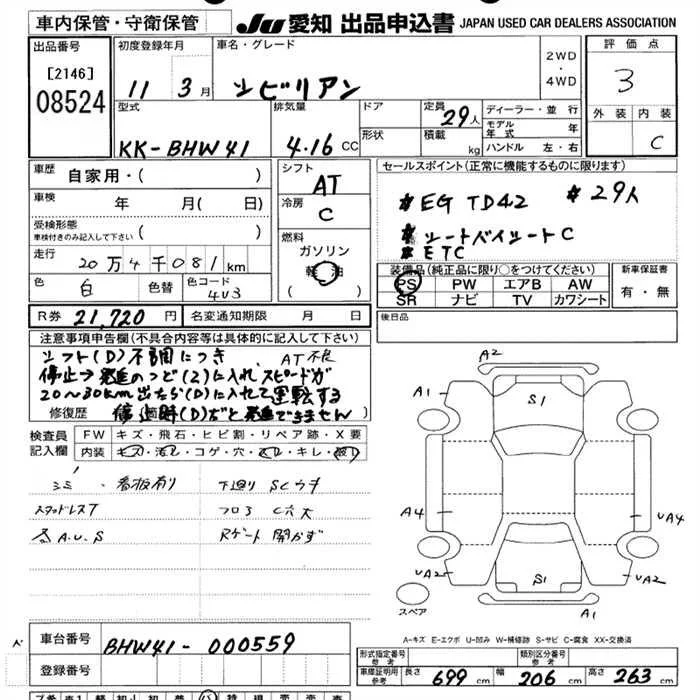 車内保管・守衛保管
JU 愛知 出品申込書 JAPAN USED CAR DEALERS ASSOCIATION
出品番号
[2146]
08524
初度登録年月
11 3月
車名・グレード
シビリアン
2WD
・
4WD
評価点
3
外装 内装
C
型式
KK-BHW41
排気量
4.16 CC
ドア
形状
定員
29人
積載
kg
ディーラー・並行
モデル年式 年
ハンドル 左・右
車歴 自家用・( )
車検 年 月( 日)
受検形態
車検付きのみ記入して下さい ( )
走行 20万4千081km
色 白 色替 色コード 4U3
シフト
AT
冷房
C
燃料
ガソリン
軽油
( )
セールスポイント(正常に機能するものに限ります)
# EG TD42 # 29人
# シートベイシートC
# ETC
装備品(純正品に限り○をつけてください)
PS PW エアB AW
SR ナビ TV カワシート
新車保証書
有・無
後日品
R券 21,720円 名変通知期限 月 日
注意事項申告欄(不具合内容等は具体的に記入して下さい)
シフト(D)不調につき AT不良
停止→発進のつど(2)に入れスピードが
20～30km出たら(D)に入れて運転する
修復歴 箇所 停止時(D)だと発進できません)
検査員記入欄
FW キズ・飛石・ヒビ割・リペア跡・X要
内装 キズ・汚レ・コゲ・穴・スレ・キレ・破レ
看板有り 下廻り SCウキ
スタッドレスT フロア C穴大
A.U.S Rゲート開かず
A2
A1
S1
A4
UA4
UA2
S1
UA2
A1
スペア
A-キズ E-エクボ U-凹み W-補修跡 S-サビ C-腐食 XX-交換済
車台番号 BHW41-000559
登録番号
形式指定番号
参考
類別区分番号
参考
車庫証明用
参考
長さ 699 cm 幅 206 cm 高さ 263 cm